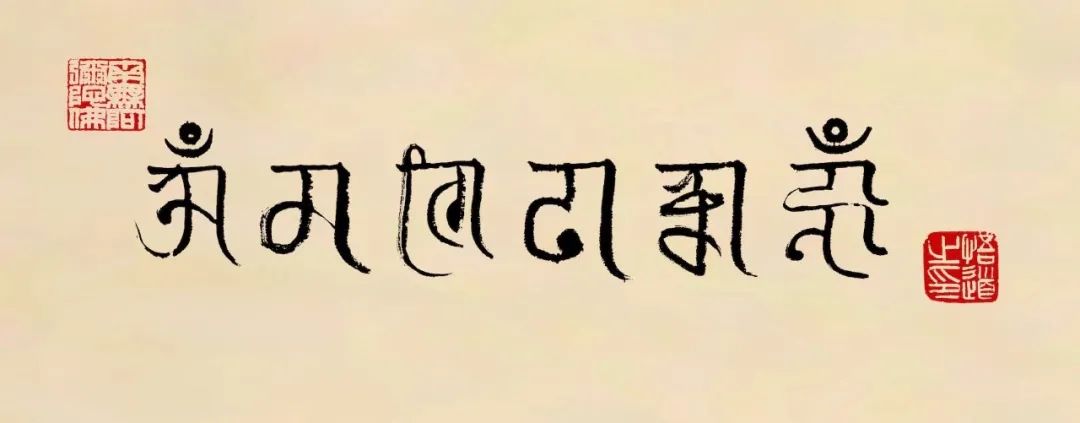 南無阿彌陀佛
𑖌𑖼 𑖦 𑖜𑖰 𑖢 𑖟𑖿𑖦𑖸 𑖮𑖳𑖼
悟道之印